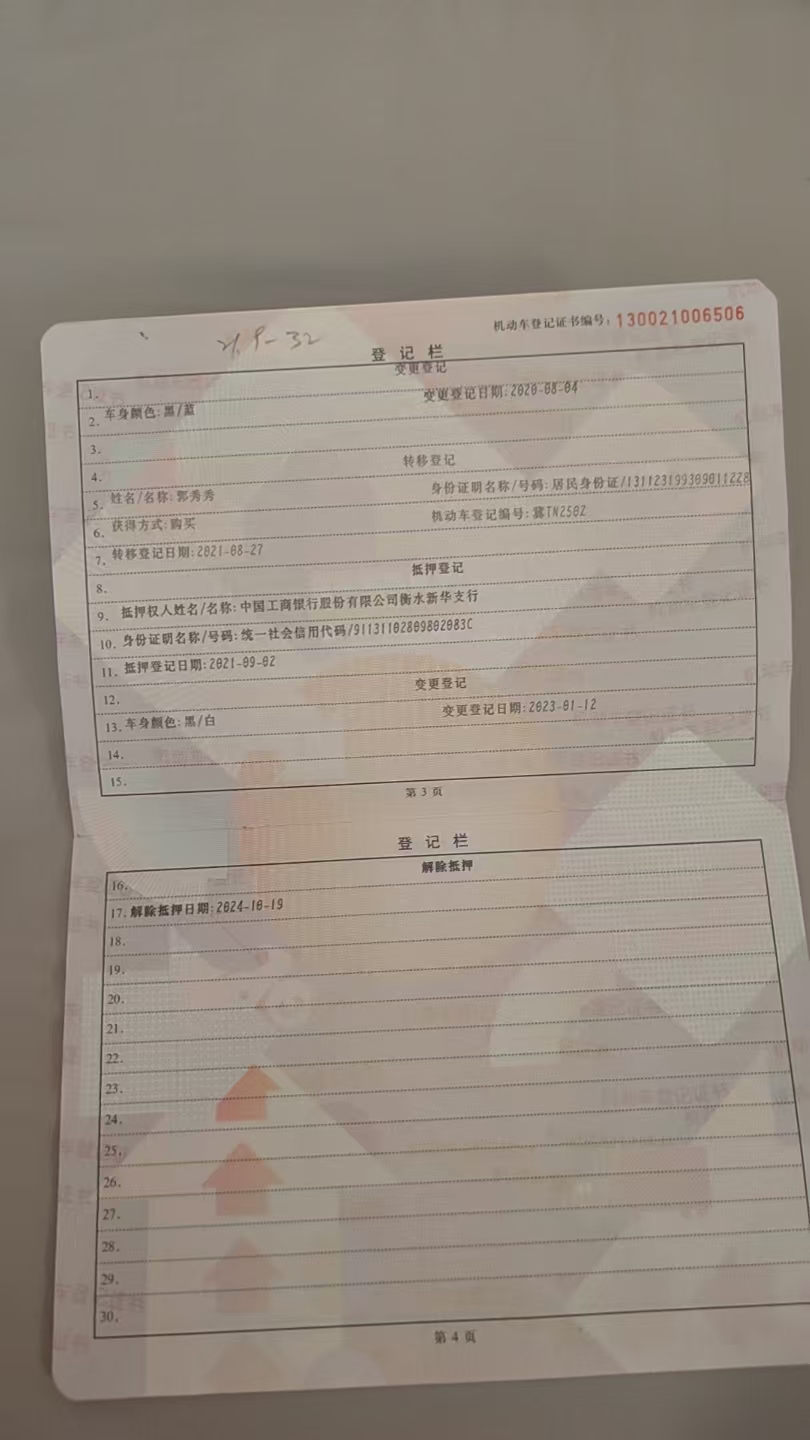 机动车登记证书编号：130021006506
登记栏
变更登记
1.
2. 车身颜色:黑/蓝 变更登记日期:2020-08-04
3.
4. 转移登记
5. 姓名/名称:郭秀秀 身份证明名称/号码:居民身份证/131123199309011228
6. 获得方式:购买 机动车登记编号:冀TN2502
7. 转移登记日期:2021-08-27
8. 抵押登记
9. 抵押权人姓名/名称:中国工商银行股份有限公司衡水新华支行
10. 身份证明名称/号码:统一社会信用代码/91131102809802083C
11. 抵押登记日期:2021-09-02
12. 变更登记
13. 车身颜色:黑/白 变更登记日期:2023-01-12
14.
15.
第 3 页
登记栏
16. 解除抵押
17. 解除抵押日期:2024-10-19
18.
19.
20.
21.
22.
23.
24.
25.
26.
27.
28.
29.
30.
第 4 页